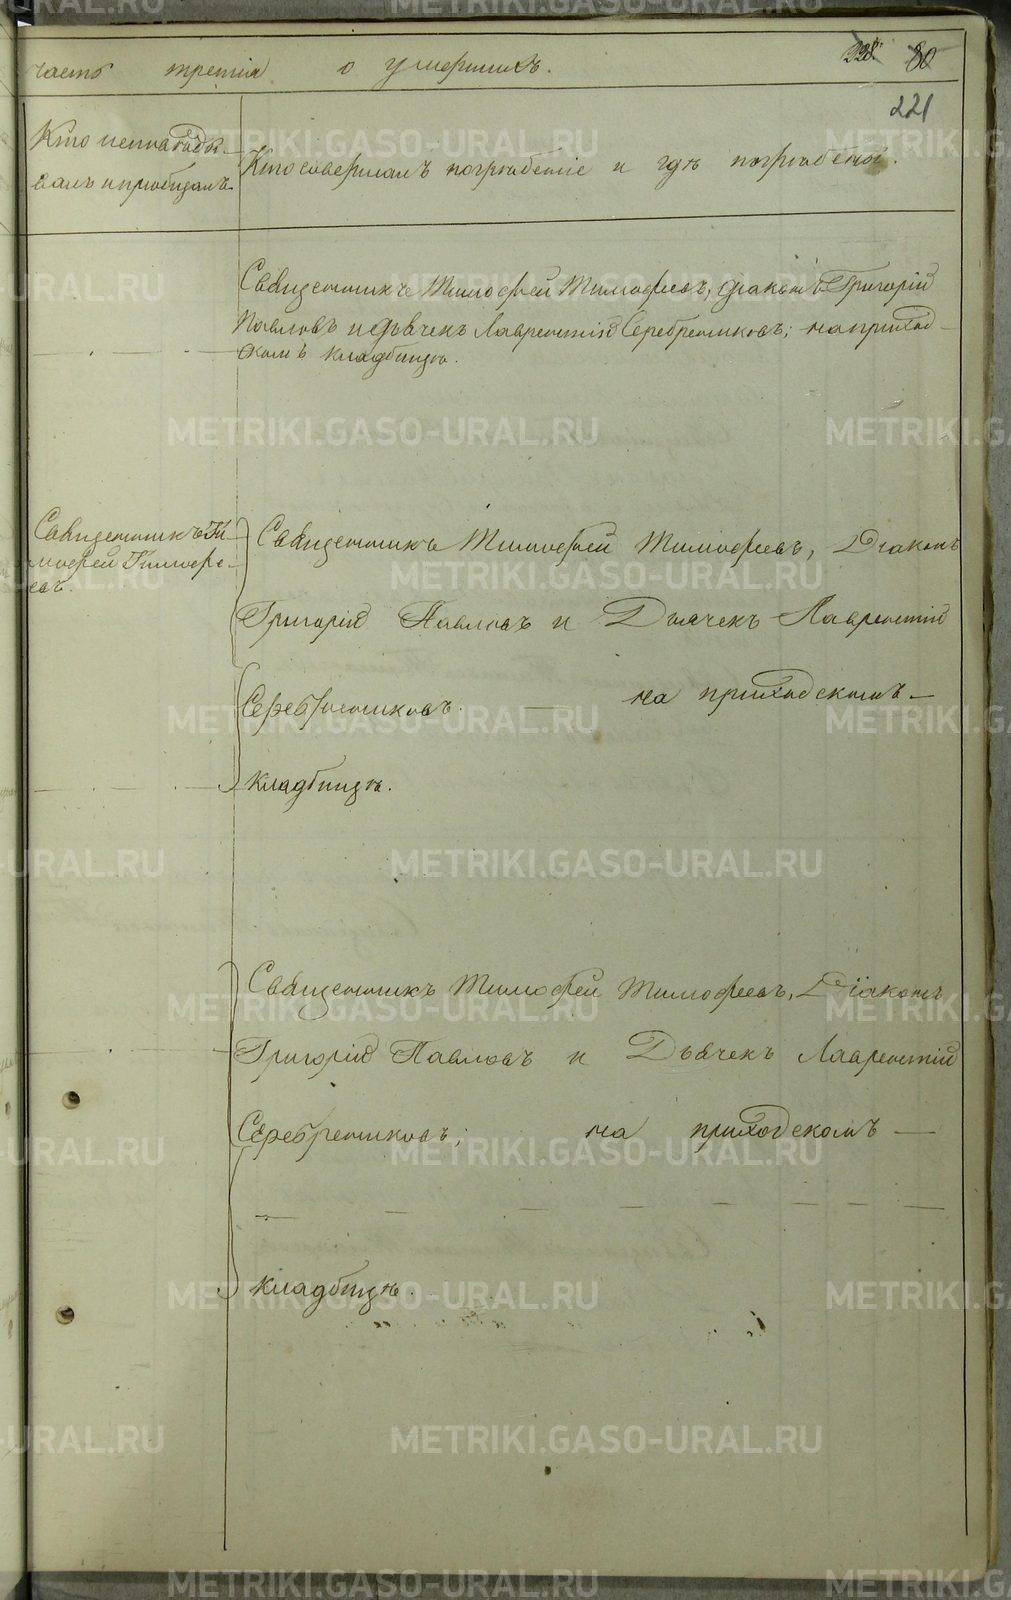 часть третія о умершихъ.
228. 80
221
Кто исповѣды-
валъ и пріобщалъ.
Кто совершалъ погребеніе и гдѣ погребены.
Священникъ Тимофей Тимофеевъ, діаконъ Григорій
Павловъ и дьячекъ Лаврентій Серебренниковъ; на приход-
скомъ кладбищѣ.
Священникъ Ти-
мофей Тимофе-
евъ.
Священникъ Тимофей Тимофеевъ, Діаконъ
Григорій Павловъ и Дьячекъ Лаврентій
Серебренниковъ. — на приходскомъ —
кладбищѣ.
Священникъ Тимофей Тимофеевъ, Діаконъ
Григорій Павловъ и Дьячекъ Лаврентій
Серебренниковъ; на приходскомъ —
кладбищѣ.
METRIKI.GASO-URAL.RU